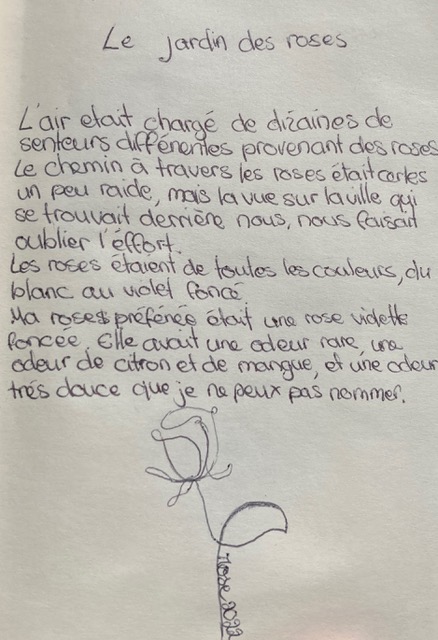 Le jardin des roses
L'air etait chargé de dizaines de
senteurs différentes provenant des roses
Le chemin à travers les roses était certes
un peu raide, mais la vue sur la ville qui
se trouvait derrière nous, nous faisait
oublier l'éffort.
Les roses étaient de toutes les couleurs, du
blanc au violet foncé.
Ma roses préférée était une rose violette
foncee. Elle avait une odeur rare, une
odeur de citron et de mangue, et une odeur
trés douce que je ne peux pas nommer.
2022